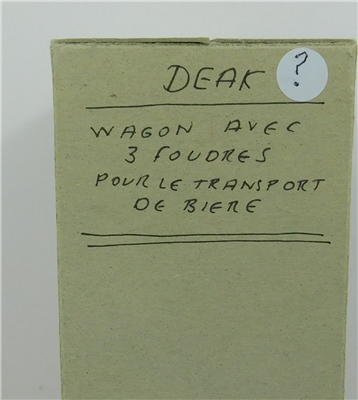 DEAK ?
WAGON AVEC
3 FOUDRES
POUR LE TRANSPORT
DE BIERE